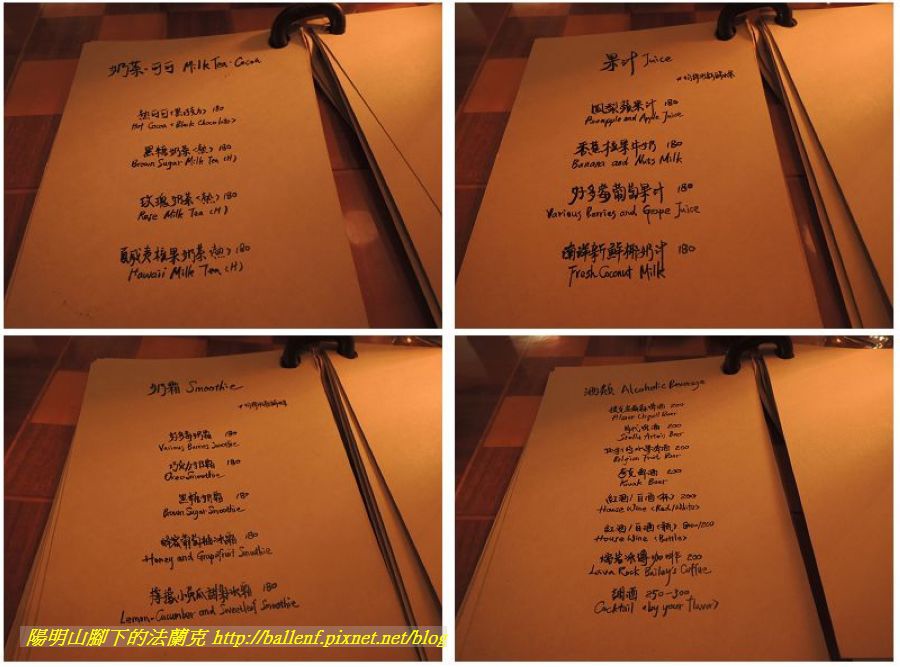 奶茶·可可 Milk Tea·Cocoa
熱可可(黑巧克力) 180
Hot Cocoa <Black Chocolate>
黑糖奶茶(熱) 180
Brown Sugar Milk Tea (H)
玫瑰奶茶(熱) 180
Rose Milk Tea (H)
夏威夷核果奶茶(熱) 180
Hawaii Milk Tea (H)
果汁 Juice
鳳梨蘋果汁 180
Pineapple and Apple Juice
香蕉核果牛奶 180
Banana and Nuts Milk
好多莓葡萄果汁 180
Various Berries and Grape Juice
南洋新鮮椰奶汁 180
Fresh Coconut Milk
奶霜 Smoothie
好多莓奶霜 180
Various Berries Smoothie
巧克力奶霜 180
Oreo Smoothie
黑糖奶霜 180
Brown Sugar Smoothie
蜂蜜葡萄柚冰霜 180
Honey and Grapefruit Smoothie
檸檬小黃瓜甜菊冰霜 180
Lemon-Cucumber and Sweetleaf Smoothie
酒類 Alcoholic Beverage
200
Pilsner Urquell Beer
200
Stella Artois Beer
200
Belgian Fruit Beer
200
Kwak Beer
紅酒/白酒(杯) 200
House Wine <Red/White>
紅酒/白酒(瓶)
House Wine <Bottle>
200
Lava Rock Bailey's Coffee
調酒 250-300
Cocktail <by your flavor>
陽明山腳下的法蘭克 http://ballenf.pixnet.net/blog